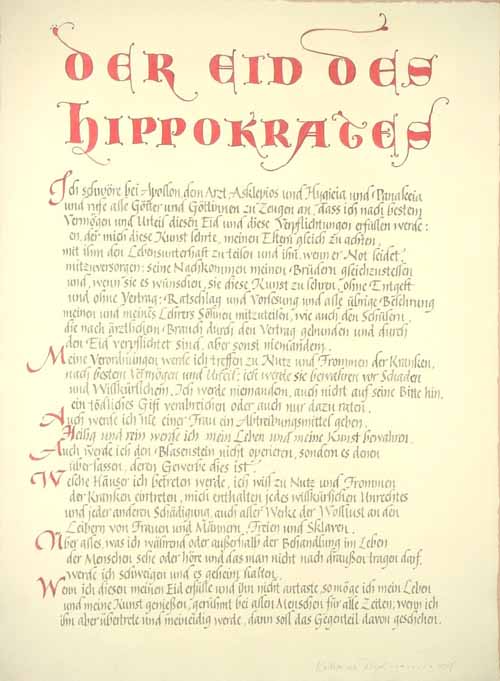 DER EID DES
HIPPOKRATES
Ich schwöre bei Apollon dem Arzt Asklepios und Hygieia und Panakeia
und rufe alle Götter und Göttinnen zu Zeugen an, dass ich nach bestem
Vermögen und Urteil diesen Eid und diese Verpflichtungen erfüllen werde:
en, der mich diese Kunst lehrte, meinen Eltern gleich zu achten,
mit ihm den Lebensunterhalt zu teilen und ihn, wenn er Not leidet,
mitzuversorgen: seine Nachkommen meinen Brüdern gleichzustellen
und, wenn sie es wünschen, sie diese Kunst zu lehren ohne Entgelt
und ohne Vertrag: Ratschlag und Vorlesung und alle übrige Belehrung
meinen und meines Lehrers Söhnen mitzuteilen, wie auch den Schülern,
die nach ärztlichem Brauch durch den Vertrag gebunden und durch
den Eid verpflichtet sind, aber sonst niemandem.
Meine Verordnungen werde ich treffen zu Nutz und Frommen der Kranken,
nach bestem Vermögen und Urteil; ich werde sie bewahren vor Schaden
und Willkürlichem. Ich werde niemandem, auch nicht auf seine Bitte hin,
ein tödliches Gift verabreichen oder auch nur dazu raten.
Auch werde ich nie einer Frau ein Abtreibungsmittel geben.
Heilig und rein werde ich mein Leben und meine Kunst bewahren.
Auch werde ich den Blasenstein nicht operieren, sondern es denen
überlassen, deren Gewerbe dies ist.
Welche Häuser ich betreten werde, ich will zu Nutz und Frommen
der Kranken eintreten, mich enthalten jedes willkürlichen Unrechtes
und jeder anderen Schädigung, auch aller Werke der Wollust an den
Leibern von Frauen und Männern, Freien und Sklaven.
Über alles, was ich während oder außerhalb der Behandlung im Leben
der Menschen sehe oder höre und das man nicht nach draußen tragen darf,
werde ich schweigen und es geheim halten.
Wenn ich diesen meinen Eid erfülle und ihn nicht antaste, so möge ich mein Leben
und meine Kunst genießen, gerühmt bei allen Menschen für alle Zeiten; wenn ich
ihn aber übertrete und meineidig werde, dann soll das Gegenteil davon geschehen.